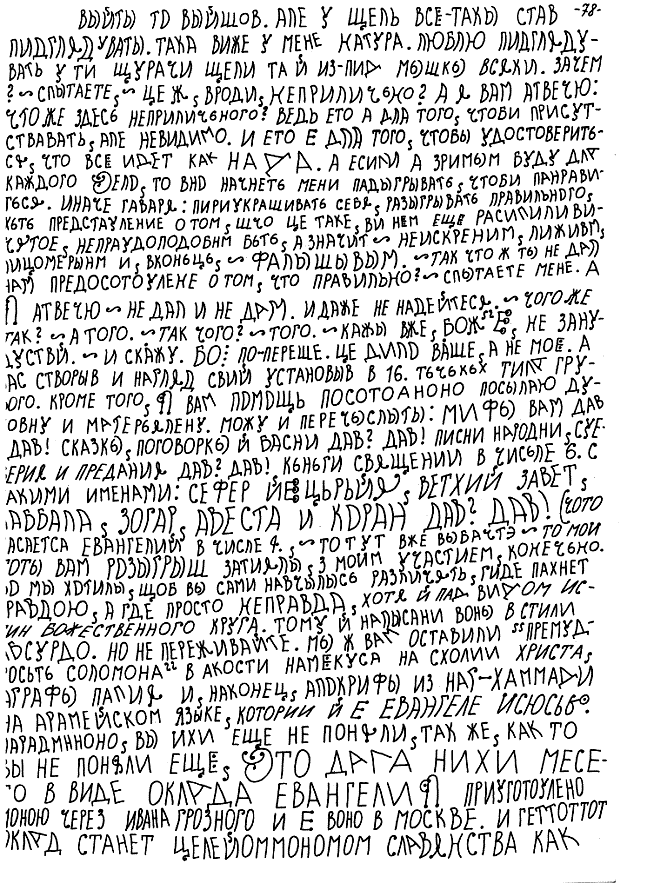 -78-
ВЫЙТЫ ТО ВЫЙШОВ. АЛЕ У ЩЕЛЬ ВСЕ-ТАКЫ СТАВ
ПИДГЛЯДУВАТЫ. ТАКА ВИЖЕ У МЕНЕ НАТУРА. ЛЮБЛЮ ПИДГЛЯДУ-
ВАТЬ У ТИ ЩУРАЧИ ЩЕЛИ ТА Й ИЗ-ПИД МЫШКЫ ВСЯКИ. ЗАЧЕМ
? ~ СПЫТАЕТЕ, ~ ЦЕ Ж, ВРОДИ, НЕПРИЛИЧЬНО? А Я ВАМ АТВЕЧЮ:
ЧТО ЖЕ ЗДЕСЬ НЕПРИЛИЧЬНОГО? ВЕДЬ ЕТО А ДЛА ТОГО, ЧТОБИ ПРИСУТ-
СТВАВАТЬ, АЛЕ НЕВИДИМО. И ЕТО Е ДЛА ТОГО, ЧТОБЫ УДОСТОВЕРИТЬ-
СЯ, ЧТО ВСЕ ИДЕТ КАК НАДА. А ЕСИЛИ А ЗРИМЫМ БУДУ ДЛА
КАЖДОГО ДЕЛО, ТО ВНО НАЧНЕТЬ МЕНИ ПАДЫГРЫВАТЬ, ЧТОБИ ПАНРАВИ-
ТЬСЯ. ИНАЧЕ ГАВАРЯ: ПИРИУКРАШИВАТЬ СЕБЯ, РАЗЫГРЫВАТЬ ПРАВИЛЬНОГО,
ПРЕДСТАУЛЕНИЕ О ТОМ, ШЧО ЦЕ ТАКЕ, ВИ НЕМ ЕЩЕ РАСИЛИЛИ ВИ-
НЕПРАУДОПОДОБНМ БЫТЬ, А ЗНАЧИТ ~ НЕИСКРЕНИМ, ЛИЖИВЫМ,
ЛИЦОМЕРЫНМ И, ВКОНЬЦЬ, ~ ФАЛЬШЫВЫМ. ~ ТАК ЧТО Ж ТЫ НЕ ДАЛ
НАМ ПРЕДОСОТОУЛЕНЕ О ТОМ, ЧТО ПРАВИЛЬНО? ~ СПЫТАЕТЕ МЕНЕ. А
Я АТВЕЧЮ ~ НЕ ДАЛ И НЕ ДАМ. И ДАЖЕ НЕ НАДЕЙТЕСЯ. ~ ЧОГО ЖЕ
ТАК? ~ А ТОГО. ~ ТАК ЧОГО? ~ ТОГО. ~ КАЖЫ ВЖЕ, БОЖЕ, НЕ ЗАНУ-
ДСТВЙ. ~ И СКАЖУ. БО: ПО-ПЕРЩЕ. ЦЕ ДИЛО ВАШЕ, А НЕ МОЕ. А
ВАС СТВОРЫВ И НАГЛЯД СВИЙ УСТАНОВЫВ В 16. ТЫЧЬКЬХ ТИПА ГРУ-
КРОМЕ ТОГО, Я ВАМ ПОМОЩЬ ПОСОТОАНОНО ПОСЫЛАЮ ДУ-
ХОВНУ И МАТЕРЬЯЛЕНУ. МОЖУ И ПЕРЕЧЫСЛЫТЫ: МИФЫ ВАМ ДАВ
? ДАВ! СКАЗКЫ, ПОГОВОРКЫ Й БАСНИ ДАВ? ДАВ! ПИСНИ НАРОДНИ, СУЕ-
ВЕРИЯ И ПРЕДАНИЯ ДАВ? ДАВ! КЬНЬГИ СВЯЩЕНИИ В ЧИСЬЛЕ 6. С
ТАКИМИ ИМЕНАМИ: СЕФЕР ЙЕЦЫРЫЙЯ, ВЕТХИЙ ЗАВЕТ,
КАББАЛА, ЗОГАР, АВЕСТА И КОРАН ДАВ? ДАВ! (ЧОТО
КАСАЕТСА ЕВАНГЕЛИЙ В ЧИСЛЕ 4. ~ ТО ТУТ ВЖЕ ВЫБАЧТЭ ~ ТО МОИ
ВАМ РОЗЫГРЫШ ЗАТИЯЛЫ, З МОЙМ УЧАСТИЕМ, КОНЕЧЬНО.
МЫ ХОТИЛЫ, ЩОБ ВЫ САМИ НАВЧЫЛЫСЬ РАЗЛИЧАТЬ, ГИДЕ ПАХНЕТ
ПРАВДОЮ, А ГДЕ ПРОСТО НЕПРАВДА, ХОТЯ Й ПАД ВИДОМ ИС-
ТИН БОЖЕСТВЕННОГО КРУГА. ТОМУ Й НАПЫСАНИ ВОНЫ В СТИЛИ
АБСУРДО. НО НЕ ПЕРЕЖИВАЙТЕ. МЫ Ж ВАМ ОСТАВИЛИ "ПРЕМУД-
РОСЬТЬ СОЛОМОНА" В АКОСТИ НАМЕКУСА НА СХОЛИИ ХРИСТА,
АГРАФЫ ПАПИЯ И, НАКОНЕЦ, АПОКРИФЫ ИЗ НАГ-ХАММАДИ
НА АРАМЕЙСКОМ ЯЗЫКЕ, КОТОРИИ Й Е ЕВАНГЕЛЕ ИСЮСЬВО.
ПАРАДМННОНО, ВЫ ИХИ ЕЩЕ НЕ ПОНЯЛИ, ТАК ЖЕ, КАК ТО
ВЫ НЕ ПОНЯЛИ ЕЩЕ, ЭТО ДАГА НИХИ МЕСЕ-
ГО В ВИДЕ ОКЛАДА ЕВАНГЕЛИЯ ПРИУГОТОУЛЕНО
МОНОЮ ЧЕРЕЗ ИВАНА ГРОЗНОГО И Е ВОНО В МОСКВЕ. И ГЕТТОТТОТ
ОКЛАД СТАНЕТ ЦЕЛЕЙОММОНОМОМ СЛАВЯНСТВА КАК